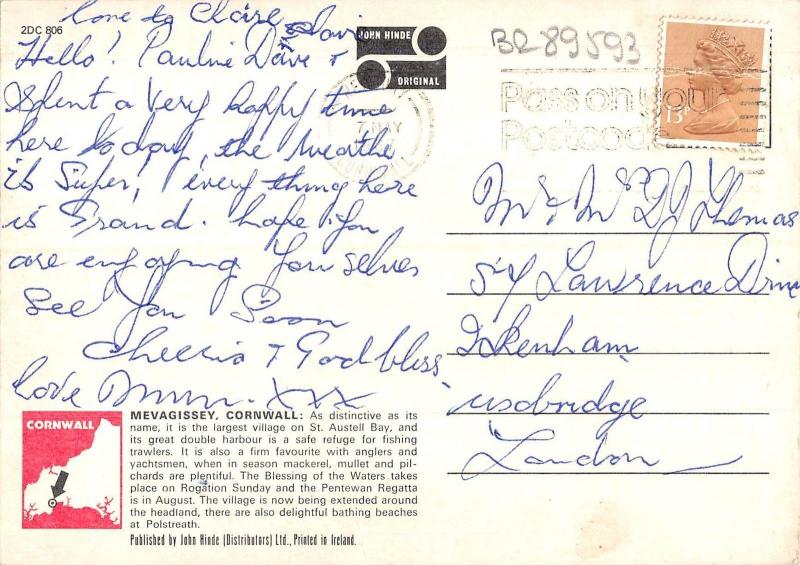 love to Claire
2DC 806
Hello! Pauline Dave +
Spent a very happy time
here today, the weathe
is Super, every thing here
is Grand. hope you
are enjoying your selves
See You Soon
Cheerio + God bless
Love Mum. XXX
JOHN HINDE
ORIGINAL
7 MAY
BR89593
Pass on your
Postcode
13P
Mr & Mrs D J Thomas
54 Lawrence Drive
Ickenham
uxbridge
London
CORNWALL
MEVAGISSEY, CORNWALL: As distinctive as its
name, it is the largest village on St. Austell Bay, and
its great double harbour is a safe refuge for fishing
trawlers. It is also a firm favourite with anglers and
yachtsmen, when in season mackerel, mullet and pil-
chards are plentiful. The Blessing of the Waters takes
place on Rogation Sunday and the Pentewan Regatta
is in August. The village is now being extended around
the headland, there are also delightful bathing beaches
at Polstreath.
Published by John Hinde (Distributors) Ltd., Printed in Ireland.